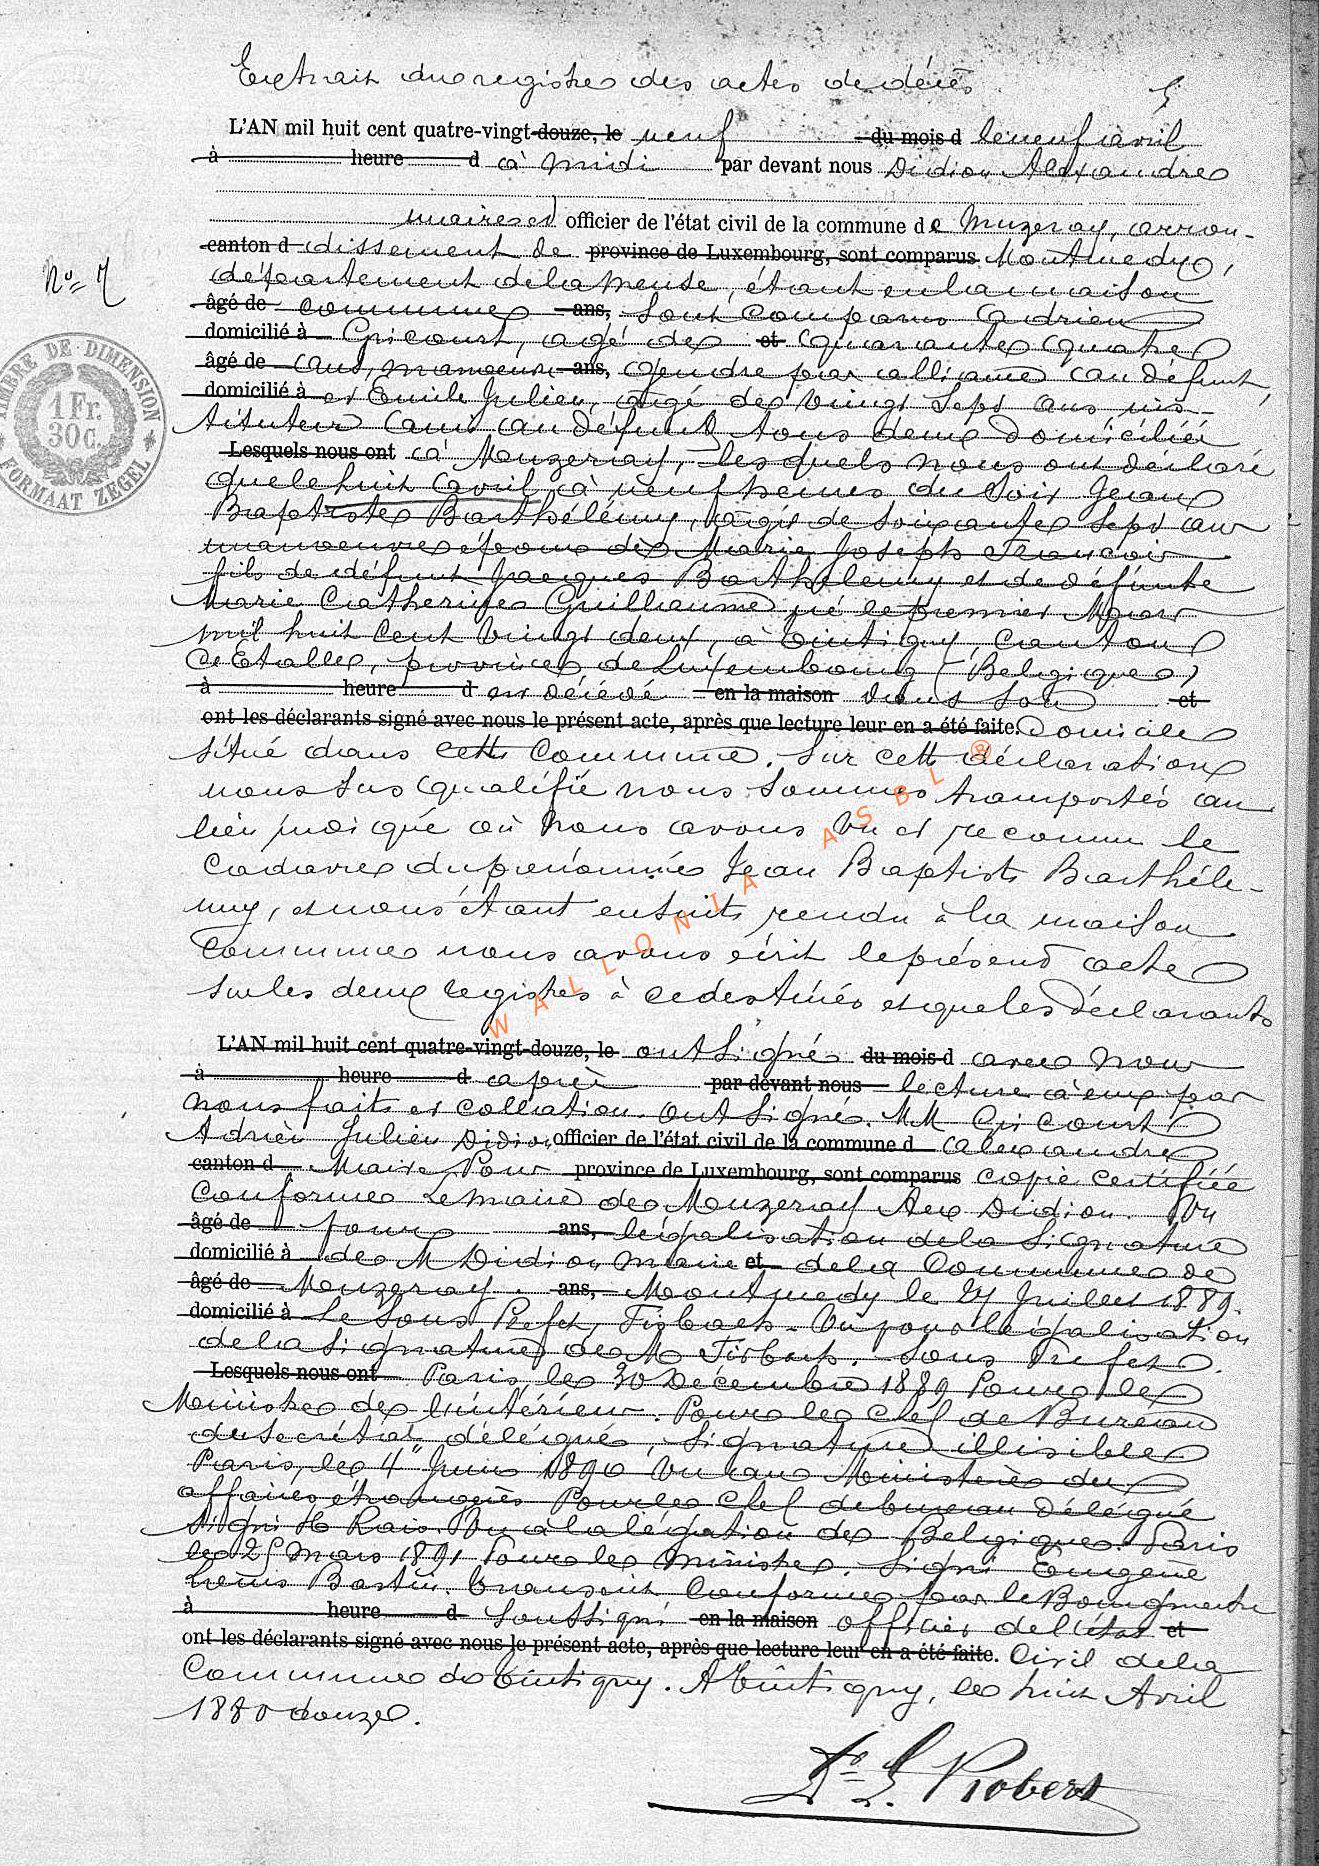 Extrait du registre des actes de décès
5
L'AN mil huit cent quatre-vingt-douze, le neuf du mois d le neuf avril
à heure d à midi par devant nous Didion Alexandre
maire et officier de l'état civil de la commune de Muzeray, arron-
canton d dissement de province de Luxembourg, sont comparus Montmedy,
N° 7
département de la Meuse, étant en la maison
âgé de commune ans, sont comparus Adrien
domicilié à Gricourt, agé de et quarante quatre
âgé de ans, manoeuvre ans, gendre par alliance au défunt,
domicilié à et Emile Julien, agé de vingt sept ans ins-
tituteur ami au défunt, tous deux domiciliés
Lesquels nous ont à Mouzeray, lesquels nous ont déclaré
que le huit avril, à neuf heures du soir Jean
Baptiste Barthélémy, agé de soixante sept ans
manoeuvre époux de Marie Joseph François
fils de défunt Jacques Barthélemy et de défunte
Marie Catherine Guillaume né le premier Mars
mil huit cent vingt deux, à Tintigny, canton
de Etalle, province de Luxembourg (Belgique)
à heure d est décédé en la maison dans son et
ont les déclarants signé avec nous le présent acte, après que lecture leur en a été faite. Domicile
situé dans cette commune. Sur cette déclaration
nous sus qualifié nous sommes transportés au
lieu indiqué où nous avons vu et reconnu le
cadavre du prénommés Jean Baptiste Barthéle-
my, et nous étant ensuite rendu à la maison
commune nous avons écrit le présent acte
sur les deux registres à ce destinés et que les déclarants
L'AN mil huit cent quatre-vingt-douze, le ont signés du mois d avec nous
à heure d après par devant nous lecture à eux par
nous faite et collation. Ont signés. MM Gricourt
Adrien Julien Didion officier de l'état civil de la commune d alexandre
canton d Maire Pour province de Luxembourg, sont comparus copie certifiée
conforme Le maire de Mouzeray Alex Didion. Vu
âgé de pour ans, légalisation de la signature
domicilié à de M Didion maire et de la commune de
âgé de Mouzeray. ans, Montmedy le 27 Juillet 1889.
domicilié à Le Sous Préfet, Fisbach. Vu pour légalisation
de la signature de M Fisbach. Sous Préfet.
Lesquels nous ont Paris, le 30 Décembre 1889 Pour le
Ministre de l'intérieur. Pour le Chef de Bureau
du secrétat délégué, signature illisible
Paris, le 4 Juin 1890 Vu au Ministère des
affaires étrangères Pour le Chef de bureau Délégué
signé Rais. Vu à la légation de Belgique. Paris
le 25 Mars 1891 Pour le ministre. Signé Eugène
Bastin. Transcrit conforme par le Bourgmestre
à heure d soussigné en la maison officier de l'état et
ont les déclarants signé avec nous le présent acte, après que lecture leur en a été faite. Civil de la
Commune de Tintigny. A Tintigny, le huit Avril
1880 douze.
L. Robert
TIMBRE DE DIMENSION
1 Fr.
30 C.
FORMAAT ZEGEL
WALLONIA ASBL ®